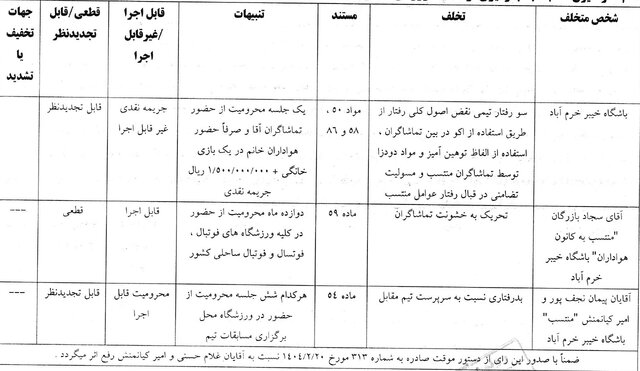 شخص متخلف
تخلف
مستند
تنبیهات
قابل اجرا
/غیرقابل
اجرا
قطعی/قابل
تجدیدنظر
جهات
تخفیف
یا
تشدید
باشگاه خیبر خرم آباد
سو رفتار تیمی نقض اصول کلی رفتار از
طریق استفاده از اکو در بین تماشاگران ،
استفاده از الفاظ توهین آمیز و مواد دودزا
توسط تماشاگران منتسب و مسولیت
تضامنی در قبال رفتار عوامل منتسب
مواد ۵۰ ،
۵۸ و ۸۶
یک جلسه محرومیت از حضور
تماشاگران آقا و صرفاً حضور
هواداران خانم در یک بازی
خانگی + ۱/۵۰۰/۰۰۰/۰۰۰ ریال
جریمه نقدی
جریمه نقدی
غیر قابل اجرا
قابل تجدیدنظر
آقای سجاد بازرگان
"منتسب به کانون
هواداران" باشگاه خیبر
خرم آباد
تحریک به خشونت تماشاگران
ماده ۵۹
دوازده ماه محرومیت از حضور
در کلیه ورزشگاه های فوتبال ،
فوتسال و فوتبال ساحلی کشور
قابل اجرا
قطعی
---
آقایان پیمان نجف پور و
امیر کیانمنش "منتسب"
باشگاه خیبر خرم آباد
بدرفتاری نسبت به سرپرست تیم مقابل
ماده ۵۴
هرکدام شش جلسه محرومیت از
حضور در ورزشگاه محل
برگزاری مسابقات تیم
محرومیت قابل
اجرا
قابل تجدیدنظر
---
ضمناً با صدور این رای از دستور موقت صادره به شماره ۳۱۳ مورخ ۱۴۰۴/۲/۲۰ نسبت به آقایان غلام حسنی و امیر کیانمنش رفع اثر میگردد .